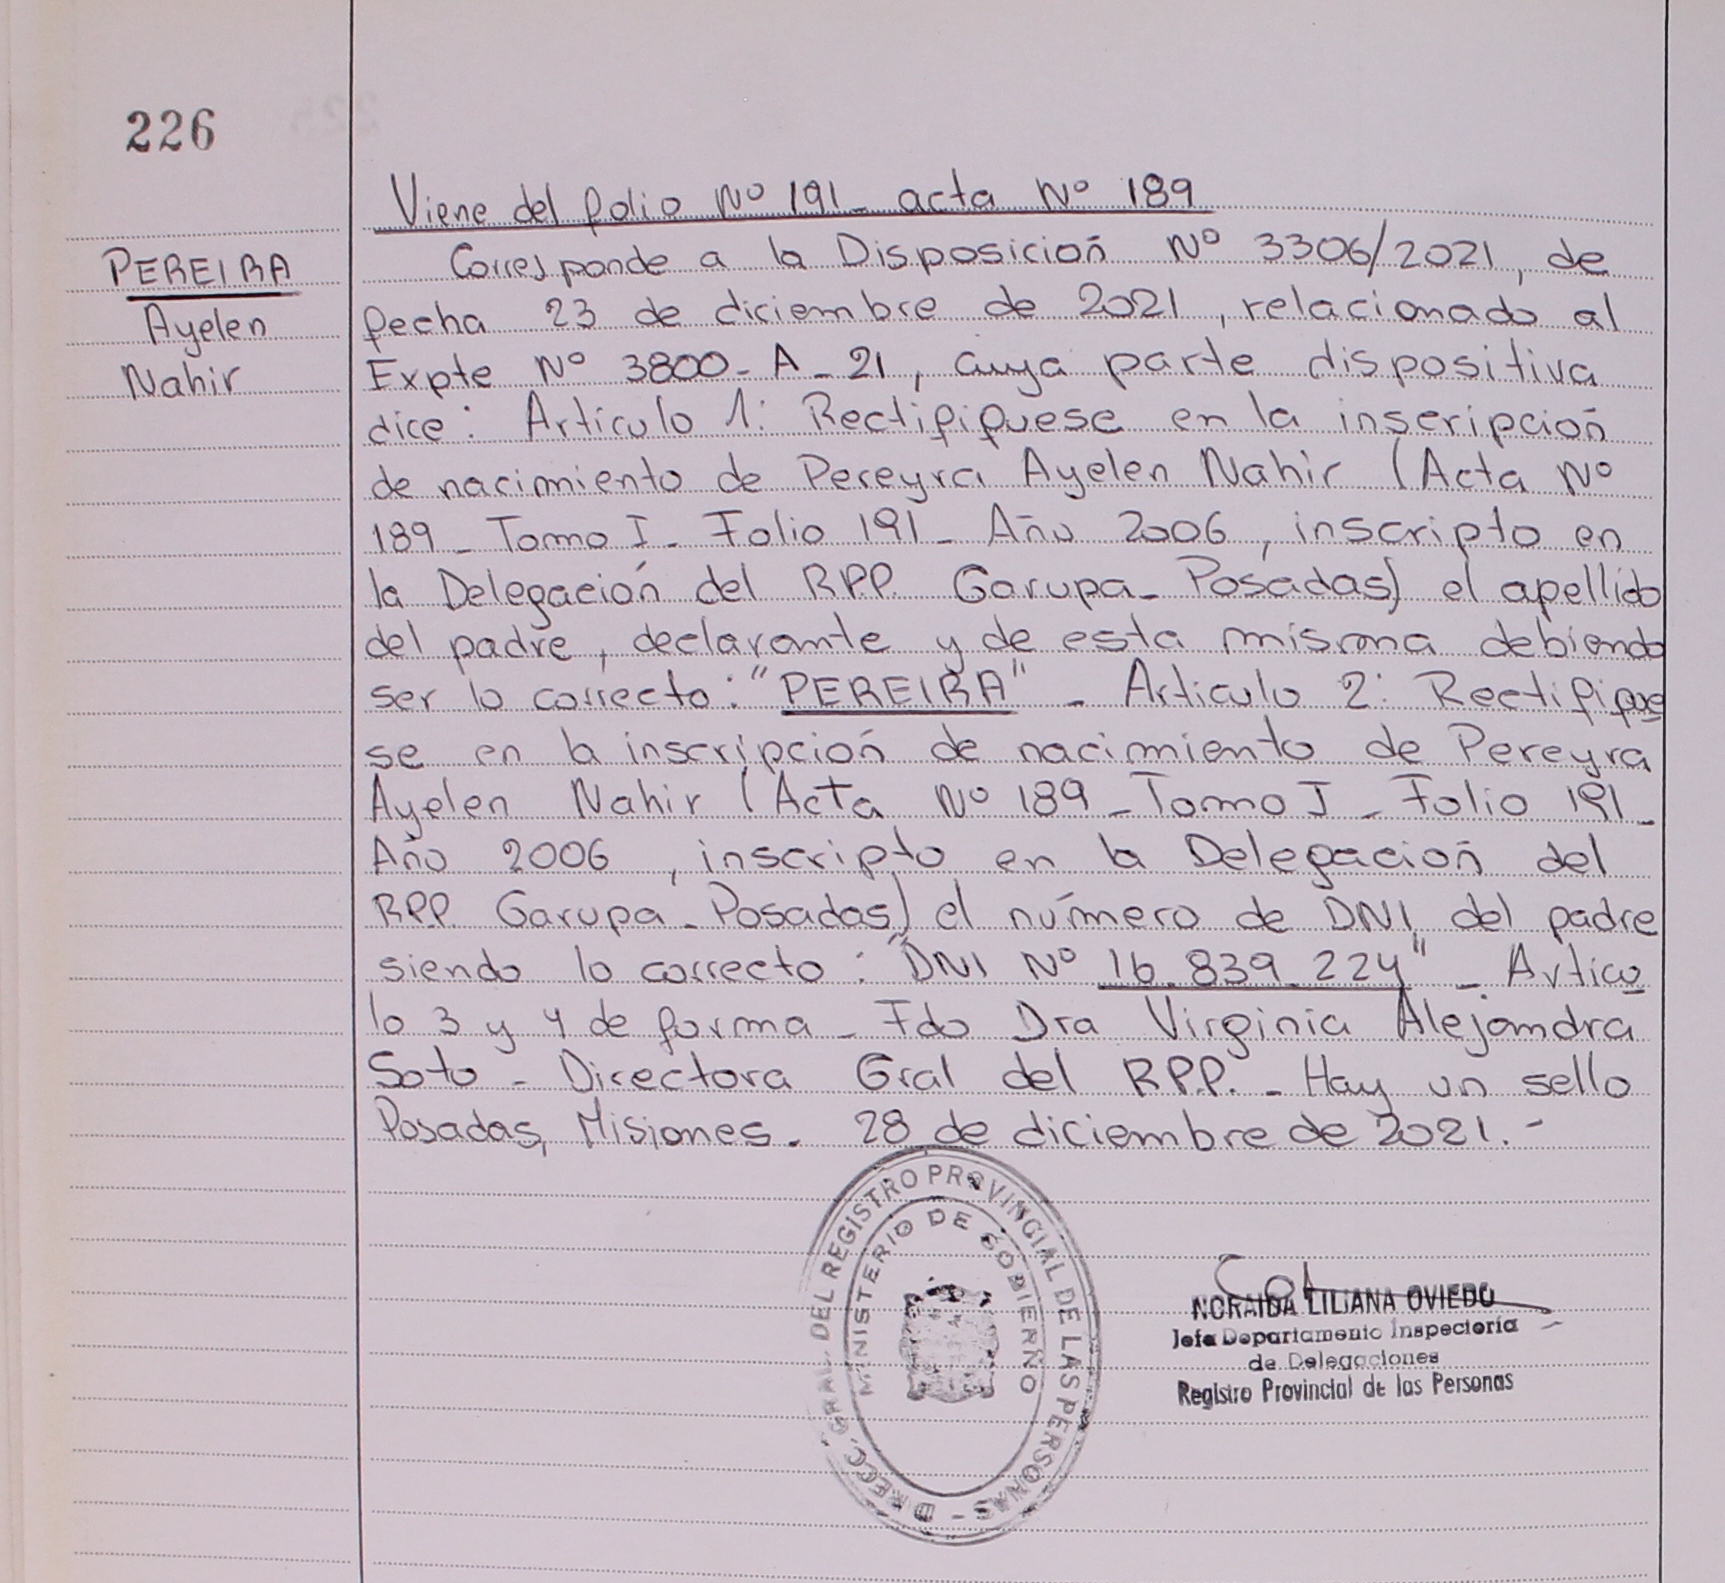 226
Viene del folio Nº 191_ acta Nº 189
PEREIRA
Ayelen
Nahir
Corresponde a la Disposición Nº 3306/2021, de
fecha 23 de diciembre de 2021, relacionado al
Expte Nº 3800_A_21, cuya parte dispositiva
dice: Articulo 1: Rectififuese en la inscripción
de nacimiento de Pereyra Ayelen Nahir (Acta Nº
189_ Tomo I_ Folio 191_ Año 2006, inscripto en
la Delegación del R.P.P. Garupa_ Posadas) el apellido
del padre, declarante y de esta misma debiendo
ser lo correcto: "PEREIRA" _ Articulo 2: Rectifique
se en la inscripción de nacimiento de Pereyra
Ayelen Nahir (Acta Nº 189_Tomo I_ Folio 191_
Año 2006, inscripto en la Delegación del
R.P.P. Garupa_ Posadas) el número de DNI, del padre
siendo lo correcto: "DNI Nº 16.839.224" _ Articu
lo 3 y 4 de forma_ Fdo Dra Virginia Alejandra
Soto_ Directora Gral del R.P.P._ Hay un sello
Posadas, Misiones. 28 de diciembre de 2021.-
DIRECC. GRAL. DEL REGISTRO PROVINCIAL DE LAS PERSONAS -
MINISTERIO DE GOBIERNO
NORAIDA LILIANA OVIEDO
Jefa Departamento Inspectoría
de Delegaciones
Registro Provincial de las Personas